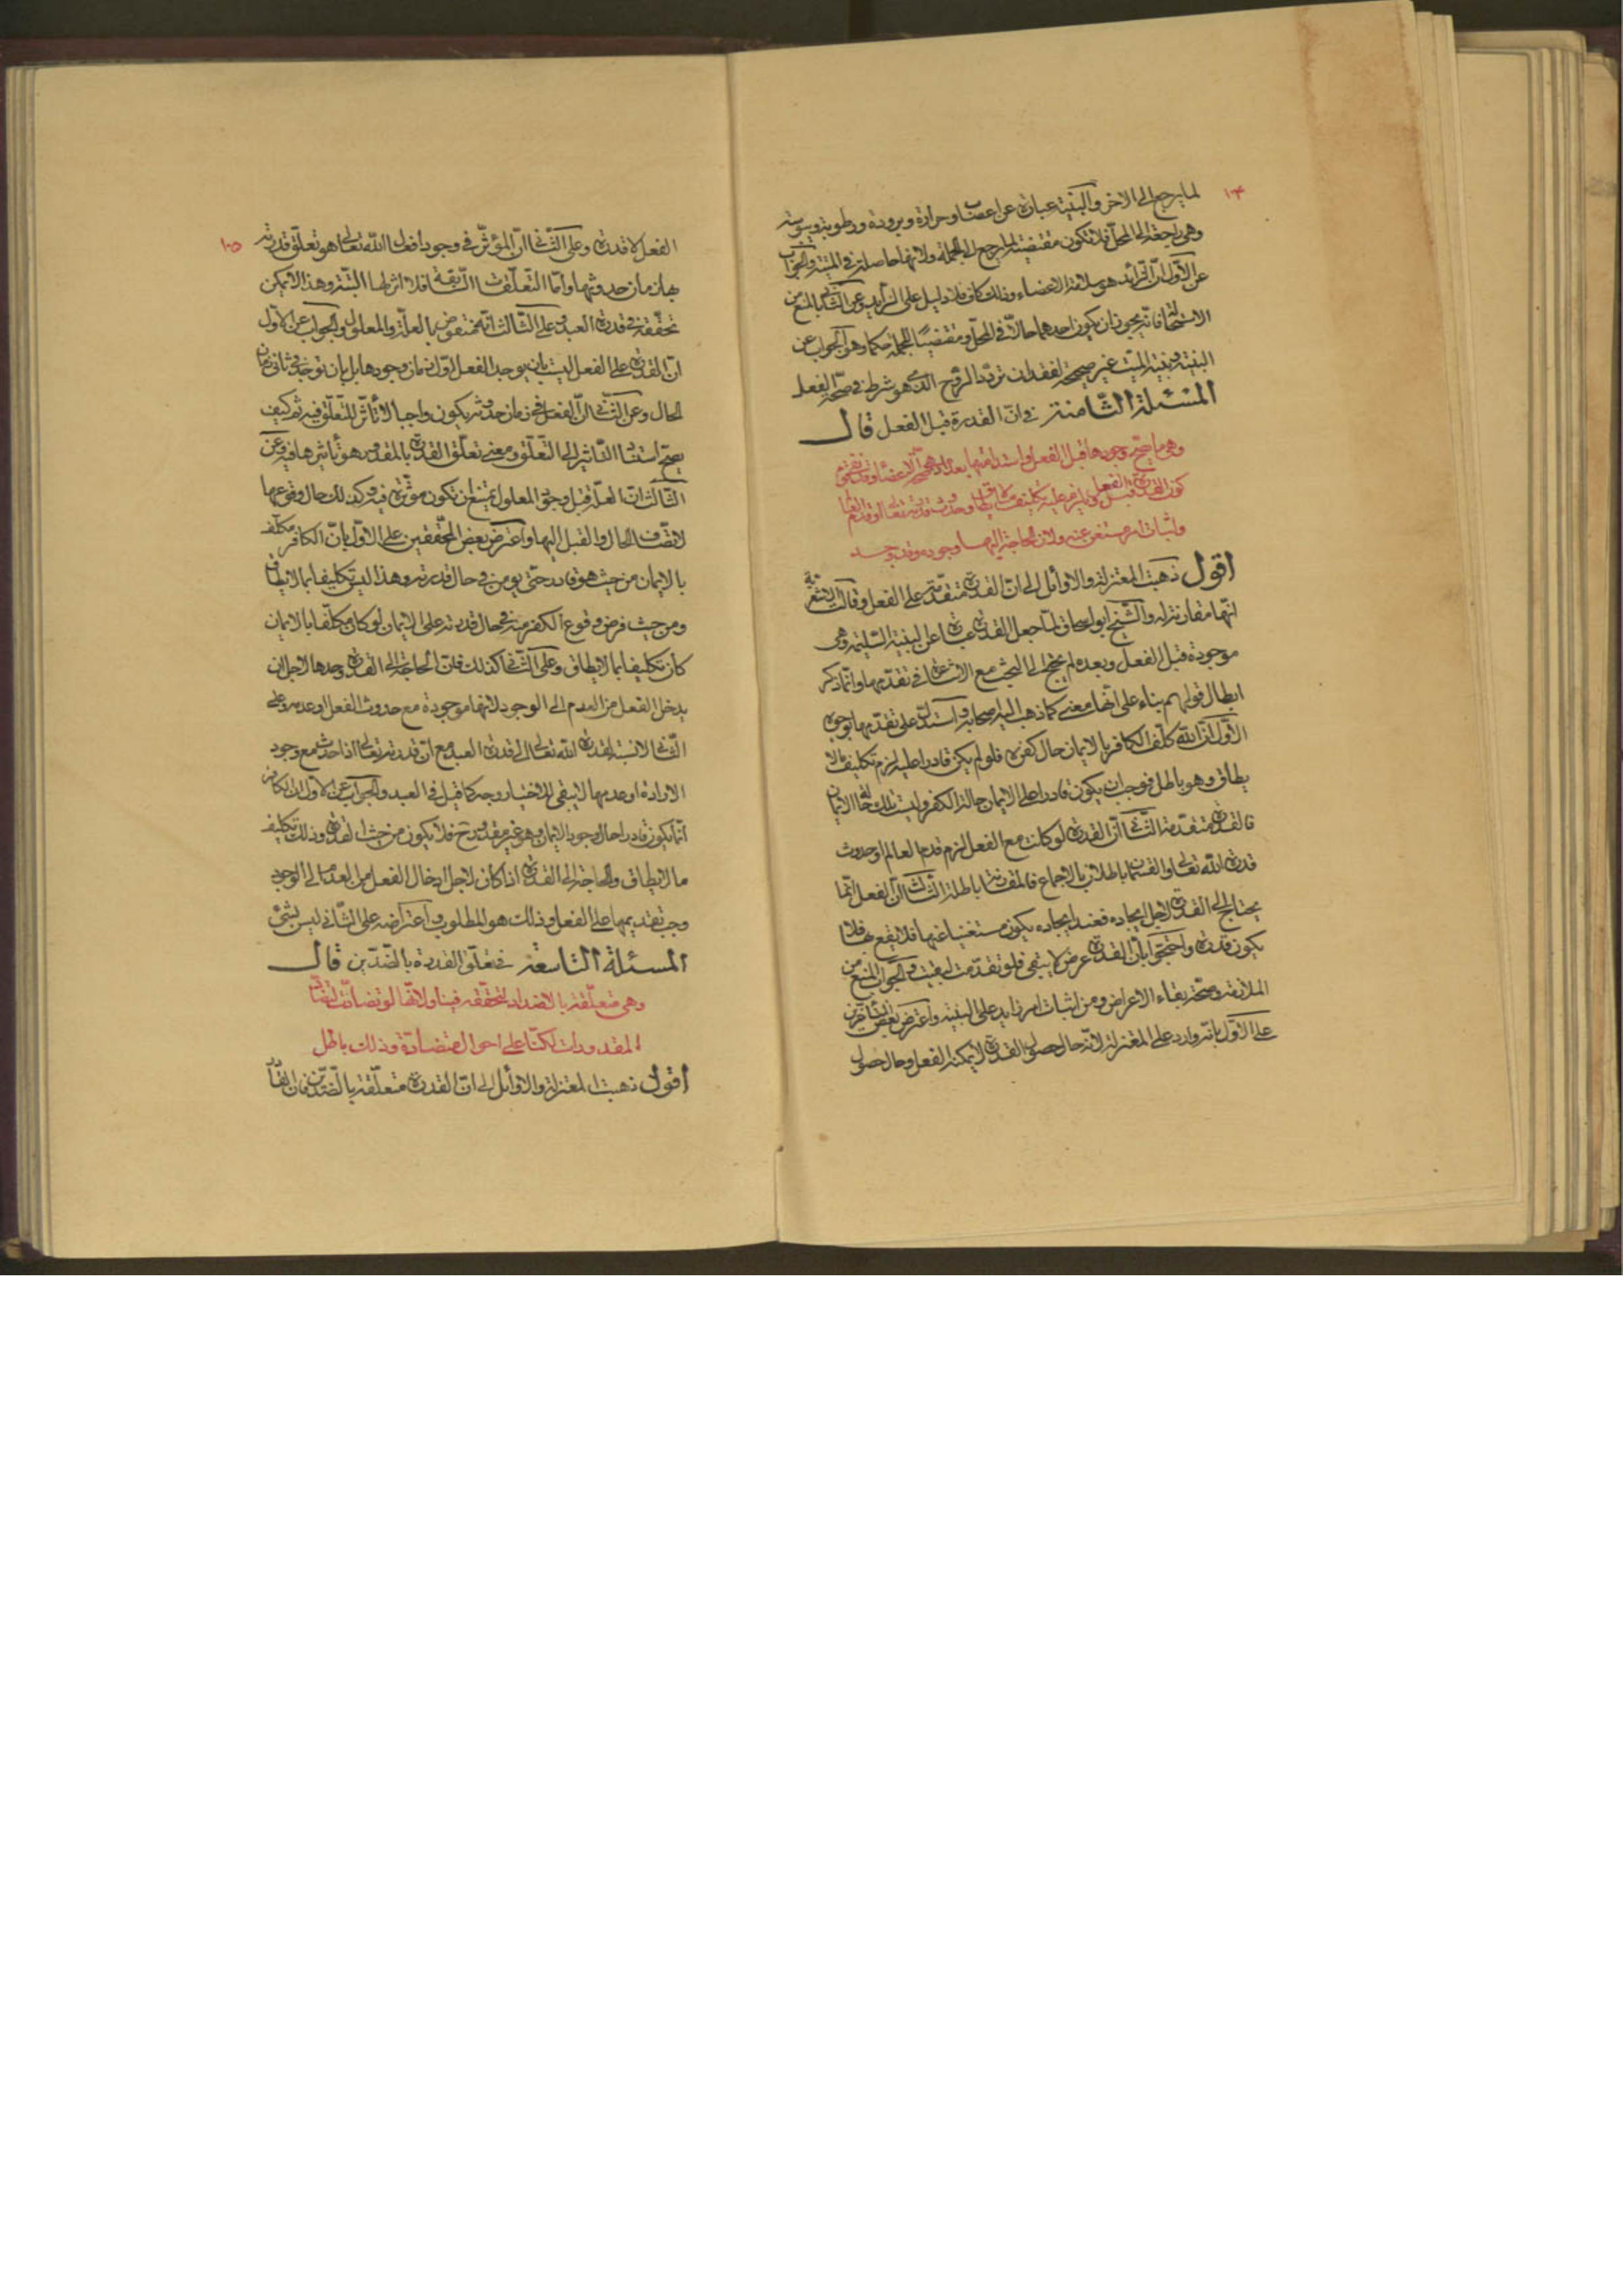 ١٠٤
لما يرجع الى الاخر والبنية عبارة عن اعصاب وحرارة وبرودة ورطوبة ويبوسة
وهي راجعة الى المحل فلا تكون مقتضية لما يرجع الى الجملة ولانها حاصلة في الميت والجواب
عن الاول ان الزائد هو سلامة الاعضاء وذلك كاف فلا دليل على الزايد وعن الثاني بالمنع من
الاستحالة فانه يجوز ان يكون احدهما حالا في المحل ومقتضيا للجملة حكما وهو الجواب عن
البنية وبنية الميت غير صحيحة لفقدان تردد الروح الذي هو شرط في صحة الفعل
المسئلة الثامنة في ان القدرة قبل الفعل قال
وهي ما صح وجودها قبل الفعل
كون القدرة قبل الفعل
واثبات امر مستغن عنه ولان الحاجة اليها وجوده وقد وجد
اقول ذهبت المعتزلة والاوائل الى ان القدرة متقدمة على الفعل وقالت الاشعرية
انها مقارنة له والشيخ ابو اسحاق لما جعل القدرة عبارة عن البنية السليمة وهي
موجودة قبل الفعل وبعده لم يحتج الى البحث مع الاشاعرة في تقدمها وانما ذكر
ابطال قولهم بناء على انها معنى كما ذهب اليه اصحابه واستدل على تقدمها بوجوه
الاول ان الله كلف الكافر بالايمان حال كفره فلو لم يكن قادرا عليه لزم تكليف ما لا
يطاق وهو باطل فوجب ان يكون قادرا على الايمان حالة الكفر وليست تلك حالة الايمان
فالقدرة متقدمة الثاني ان القدرة لو كانت مع الفعل لزم قدم العالم او حدوث
قدرة الله تعالى والقسمان باطلان بالاجماع فالمقارنة باطلة الثالث ان الفعل انما
يحتاج الى القدرة لاجل ايجاده فعند ايجاده يكون مستغنيا عنها فلا يقع بها فلا
يكون قدرة واحتجوا بان القدرة عرض لا يبقى فلو تقدمت لم يبقيت والجواب المنع من
الملازمة وصحة بقاء الاعراض ومن اثبات امر زايد على البنية واعترض بعض المتاخرين
على الاول بانه وارد على المعتزلة لانه حال حصول القدرة لا يمكنه الفعل وحال حصول
١٠٥
الفعل لا قدرة وعلى الثاني ان المؤثر في وجود افعال الله تعالى هو تعلق قدرته
بها زمان حدوثها واما التعلقات السابقة فلا اثر لها البتة وهذا لا يمكن
تحققه في قدرة العبد وعلى الثالث انه منقوض بالعلة والمعلول والجواب عن الاول
ان القدرة على الفعل ليست بان يوجد الفعل اول زمان وجودها بل بان توجد في ثاني زمان
الحال وعن الثاني ان الفعل في زمان حدوثه يكون واجبا لا تأثر للتعلق فيه ثم كيف
يصح استناد التاثير الى التعلق ومعنى تعلق القدرة بالمقدور هو تأثيرها فيه وعن
الثالث ان العلة قبل وجود المعلول يمتنع ان تكون موثرة فيه وكذلك حال وقوعها
لاتصاف الحال والقبل اليها واعترض بعض المحققين على الاول بان الكافر مكلف
بالايمان من حيث هو قادر حتى يومن في حال قدرته وهذا ليس تكليفا بما لا يطاق
ومن حيث فرض وقوع الكفر منه في حال قدرته على الايمان لو كان مكلفا بالايمان
كان تكليفا بما لا يطاق وعلى الثاني كذلك فان الحاجة الى القدرة وحدها لاجل ان
يدخل الفعل من العدم الى الوجود لانها موجودة مع حدوث الفعل او عدمه وعلى
الثاني لا نسبة لقدرة الله تعالى الى قدرة العبد مع ان قدرته تعالى اذا حدثت مع وجود
الارادة او عدمها لا يبقى للاختيار وجه كما قيل في العبد والجواب عن الاول ان الكافر
انما يكون قادرا حال وجود الايمان وهو غير مقدور ح فلا يكون من حيث القدرة وذلك تكليف
ما لا يطاق والحاجة الى القدرة اذا كان لاجل ادخال الفعل من العدم الى الوجود
وجب تقديمها على الفعل وذلك هو المطلوب واعتراضه على الثاني ليس بشئ
المسئلة التاسعة في تعلق القدرة بالضدين قال
وهي متعلقة بالاضداد لتحققه فينا ولانها لو تضادت لتضاد
المقدورات لكنا على احوال متضادة وذلك باطل
اقول ذهبت المعتزلة والاوائل الى ان القدرة متعلقة بالضدين فان القادر